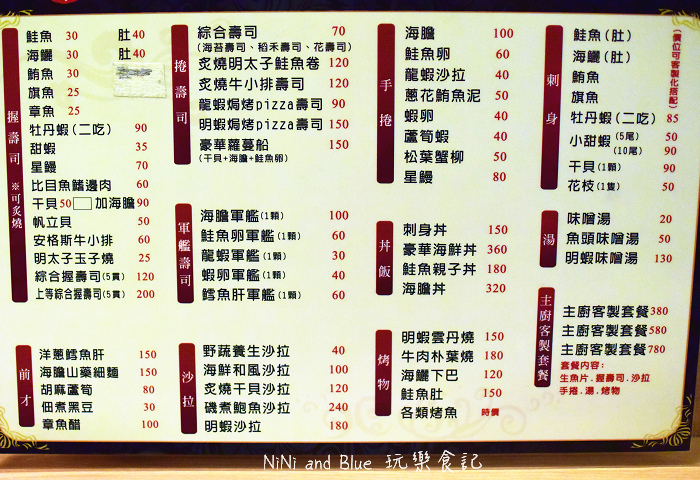 握壽司 ※可炙燒
鮭魚 30 肚40
海鱺 30 肚40
鮪魚 30
旗魚 25
章魚 25
牡丹蝦(二吃) 90
甜蝦 35
星鰻 70
比目魚鰭邊肉 60
干貝50 加海膽90
帆立貝 50
安格斯牛小排 60
明太子玉子燒 25
綜合握壽司(5貫) 120
上等綜合握壽司(5貫) 200
前才
洋蔥鱈魚肝 150
海膽山藥細麵 150
胡麻蘆筍 80
佃煮黑豆 30
章魚醋 100
捲壽司
綜合壽司 70
(海苔壽司、稻禾壽司、花壽司)
炙燒明太子鮭魚卷 120
炙燒牛小排壽司 120
龍蝦焗烤pizza壽司 90
明蝦焗烤pizza壽司 150
豪華羅蔓船 150
(干貝+海膽+鮭魚卵)
軍艦壽司
海膽軍艦(1顆) 100
鮭魚卵軍艦(1顆) 60
龍蝦軍艦(1顆) 30
蝦卵軍艦(1顆) 40
鱈魚肝軍艦(1顆) 60
沙拉
野蔬養生沙拉 40
海鮮和風沙拉 100
炙燒干貝沙拉 120
磯煮鮑魚沙拉 240
明蝦沙拉 180
手捲
海膽 100
鮭魚卵 60
龍蝦沙拉 40
蔥花鮪魚泥 50
蝦卵 40
蘆筍蝦 40
松葉蟹柳 50
星鰻 80
丼飯
刺身丼 150
豪華海鮮丼 360
鮭魚親子丼 180
海膽丼 320
烤物
明蝦雲丹燒 150
牛肉朴葉燒 180
海鱺下巴 120
鮭魚肚 150
各類烤魚 時價
刺身
(價位可客製化搭配)
鮭魚(肚)
海鱺(肚)
鮪魚
旗魚
牡丹蝦(二吃) 85
小甜蝦(5尾) 50
(10尾) 90
干貝(1顆) 90
花枝(1隻) 50
湯
味噌湯 20
魚頭味噌湯 50
明蝦味噌湯 130
主廚客製套餐
主廚客製套餐380
主廚客製套餐580
主廚客製套餐780
套餐內容:
生魚片.握壽司.沙拉
手捲.湯.烤物
NiNi and Blue 玩樂食記